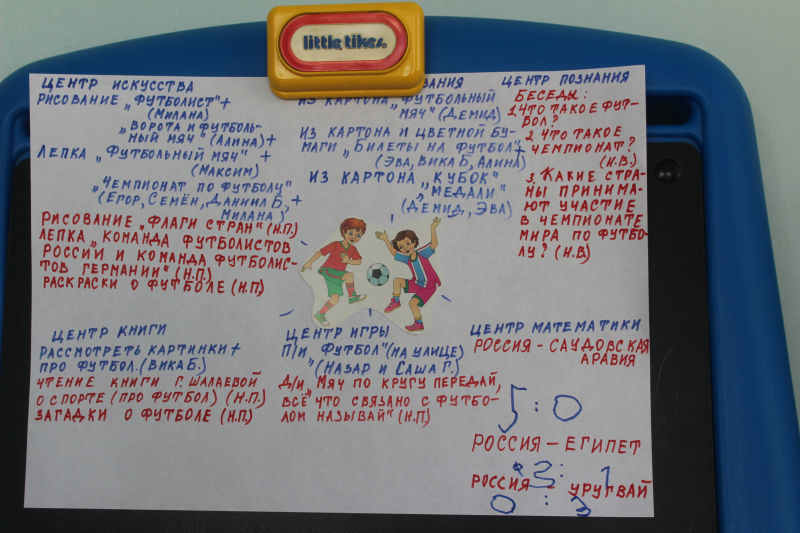 little tikes
ЦЕНТР ИСКУССТВА
РИСОВАНИЕ „ФУТБОЛИСТ"+
(МИЛАНА)
„ВОРОТА И ФУТБОЛЬ-
НЫЙ МЯЧ" (АЛИНА)+
ЛЕПКА „ФУТБОЛЬНЫЙ МЯЧ" +
(МАКСИМ)
„ЧЕМПИОНАТ ПО ФУТБОЛУ"
(ЕГОР, СЕМЁН, ДАНИИЛ Б., +
МИЛАНА)
РИСОВАНИЕ „ФЛАГИ СТРАН" (Н.П.)
ЛЕПКА „КОМАНДА ФУТБОЛИСТОВ
РОССИИ И КОМАНДА ФУТБОЛИС-
ТОВ ГЕРМАНИИ" (Н.П.)
РАСКРАСКИ О ФУТБОЛЕ (Н.П)
ВАНИЯ
ИЗ КАРТОНА „ФУТБОЛЬНЫЙ
МЯЧ" (ДЕМИД)
ИЗ КАРТОНА И ЦВЕТНОЙ БУ-
МАГИ „БИЛЕТЫ НА ФУТБОЛ"+
(ЭВА, ВИКА Б, АЛИНА)
ИЗ КАРТОНА „КУБОК"
„МЕДАЛИ"
(ДЕМИД, ЭВА)
ЦЕНТР ПОЗНАНИЯ
БЕСЕДЫ:
1. ЧТО ТАКОЕ ФУТ-
БОЛ?
2. ЧТО ТАКОЕ
ЧЕМПИОНАТ?
(Н.В.)
3. КАКИЕ СТРА-
НЫ ПРИНИМА-
ЮТ УЧАСТИЕ
В ЧЕМПИОНАТЕ
МИРА ПО ФУТБО-
ЛУ? (Н.В)
ЦЕНТР КНИГИ
РАССМОТРЕТЬ КАРТИНКИ+
ПРО ФУТБОЛ. (ВИКА Б.)
ЧТЕНИЕ КНИГИ Г. ШАЛАЕВОЙ
О СПОРТЕ (ПРО ФУТБОЛ) (Н.П.)
ЗАГАДКИ О ФУТБОЛЕ (Н.П.)
ЦЕНТР ИГРЫ
П/И ФУТБОЛ" (НА УЛИЦЕ)
(НАЗАР И САША Г.)
Д/И „МЯЧ ПО КРУГУ ПЕРЕДАЙ,
ВСЁ ЧТО СВЯЗАНО С ФУТБО-
ЛОМ НАЗЫВАЙ" (Н.П)
ЦЕНТР МАТЕМАТИКИ
РОССИЯ - САУДОВСКАЯ
АРАВИЯ
5 : 0
РОССИЯ - ЕГИПЕТ
3 : 1
РОССИЯ - УРУГВАЙ
0 : 3